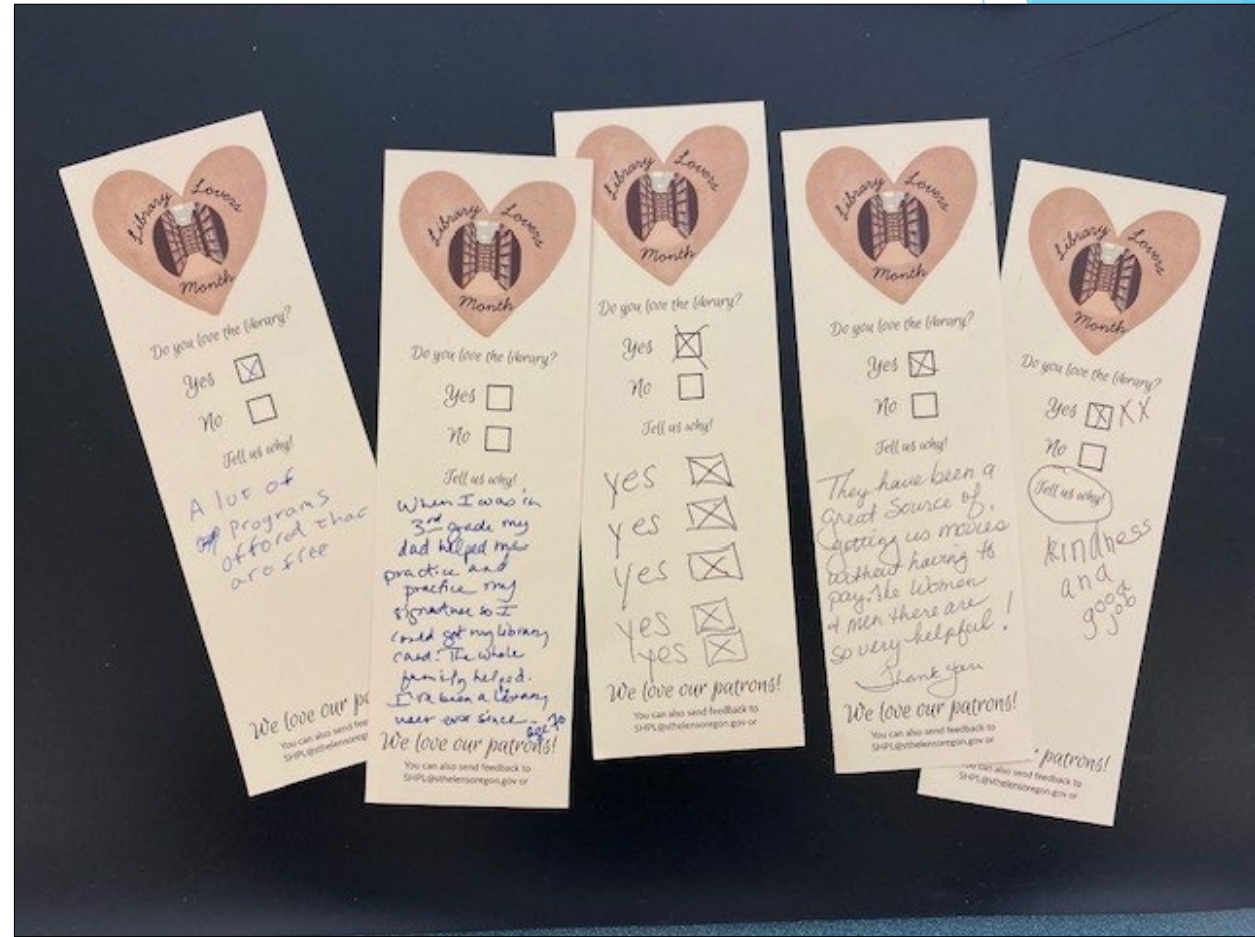 Library Lovers
Month
Do you love the library?
Yes
No
Tell us why!
A lot of
Programs
offord that
are free
We love our pa
You can also send fee
SHPL@sthelensoreg
Library Lovers
Month
Do you love the library?
Yes
No
Tell us why!
When I was in
3rd grade my
dad helped me
practice and
practice my
signature so I
could get my library
card. The whole
family helped.
I've been a library
user ever since –
age 70
We love our patrons!
You can also send feedback to
SHPL@sthelensoregon.gov or
Library Lovers
Month
Do you love the library?
Yes
No
Tell us why!
yes
yes
yes
yes
yes
We love our patrons!
You can also send feedback to
SHPL@sthelensoregon.gov or
Library Lovers
Month
Do you love the library?
Yes
No
Tell us why!
They have been a
Great Source of,
getting us movies
without having to
pay. The Women
& men there are
so very helpful!
Thank you
We love our patrons!
You can also send feedback to
SHPL@sthelensoregon.gov or
Library Lovers
Month
Do you love the library?
Yes XX
No
Tell us why!
kindness
and
good
job
patrons!
You can also send feedback to
SHPL@sthelensoregon.gov or